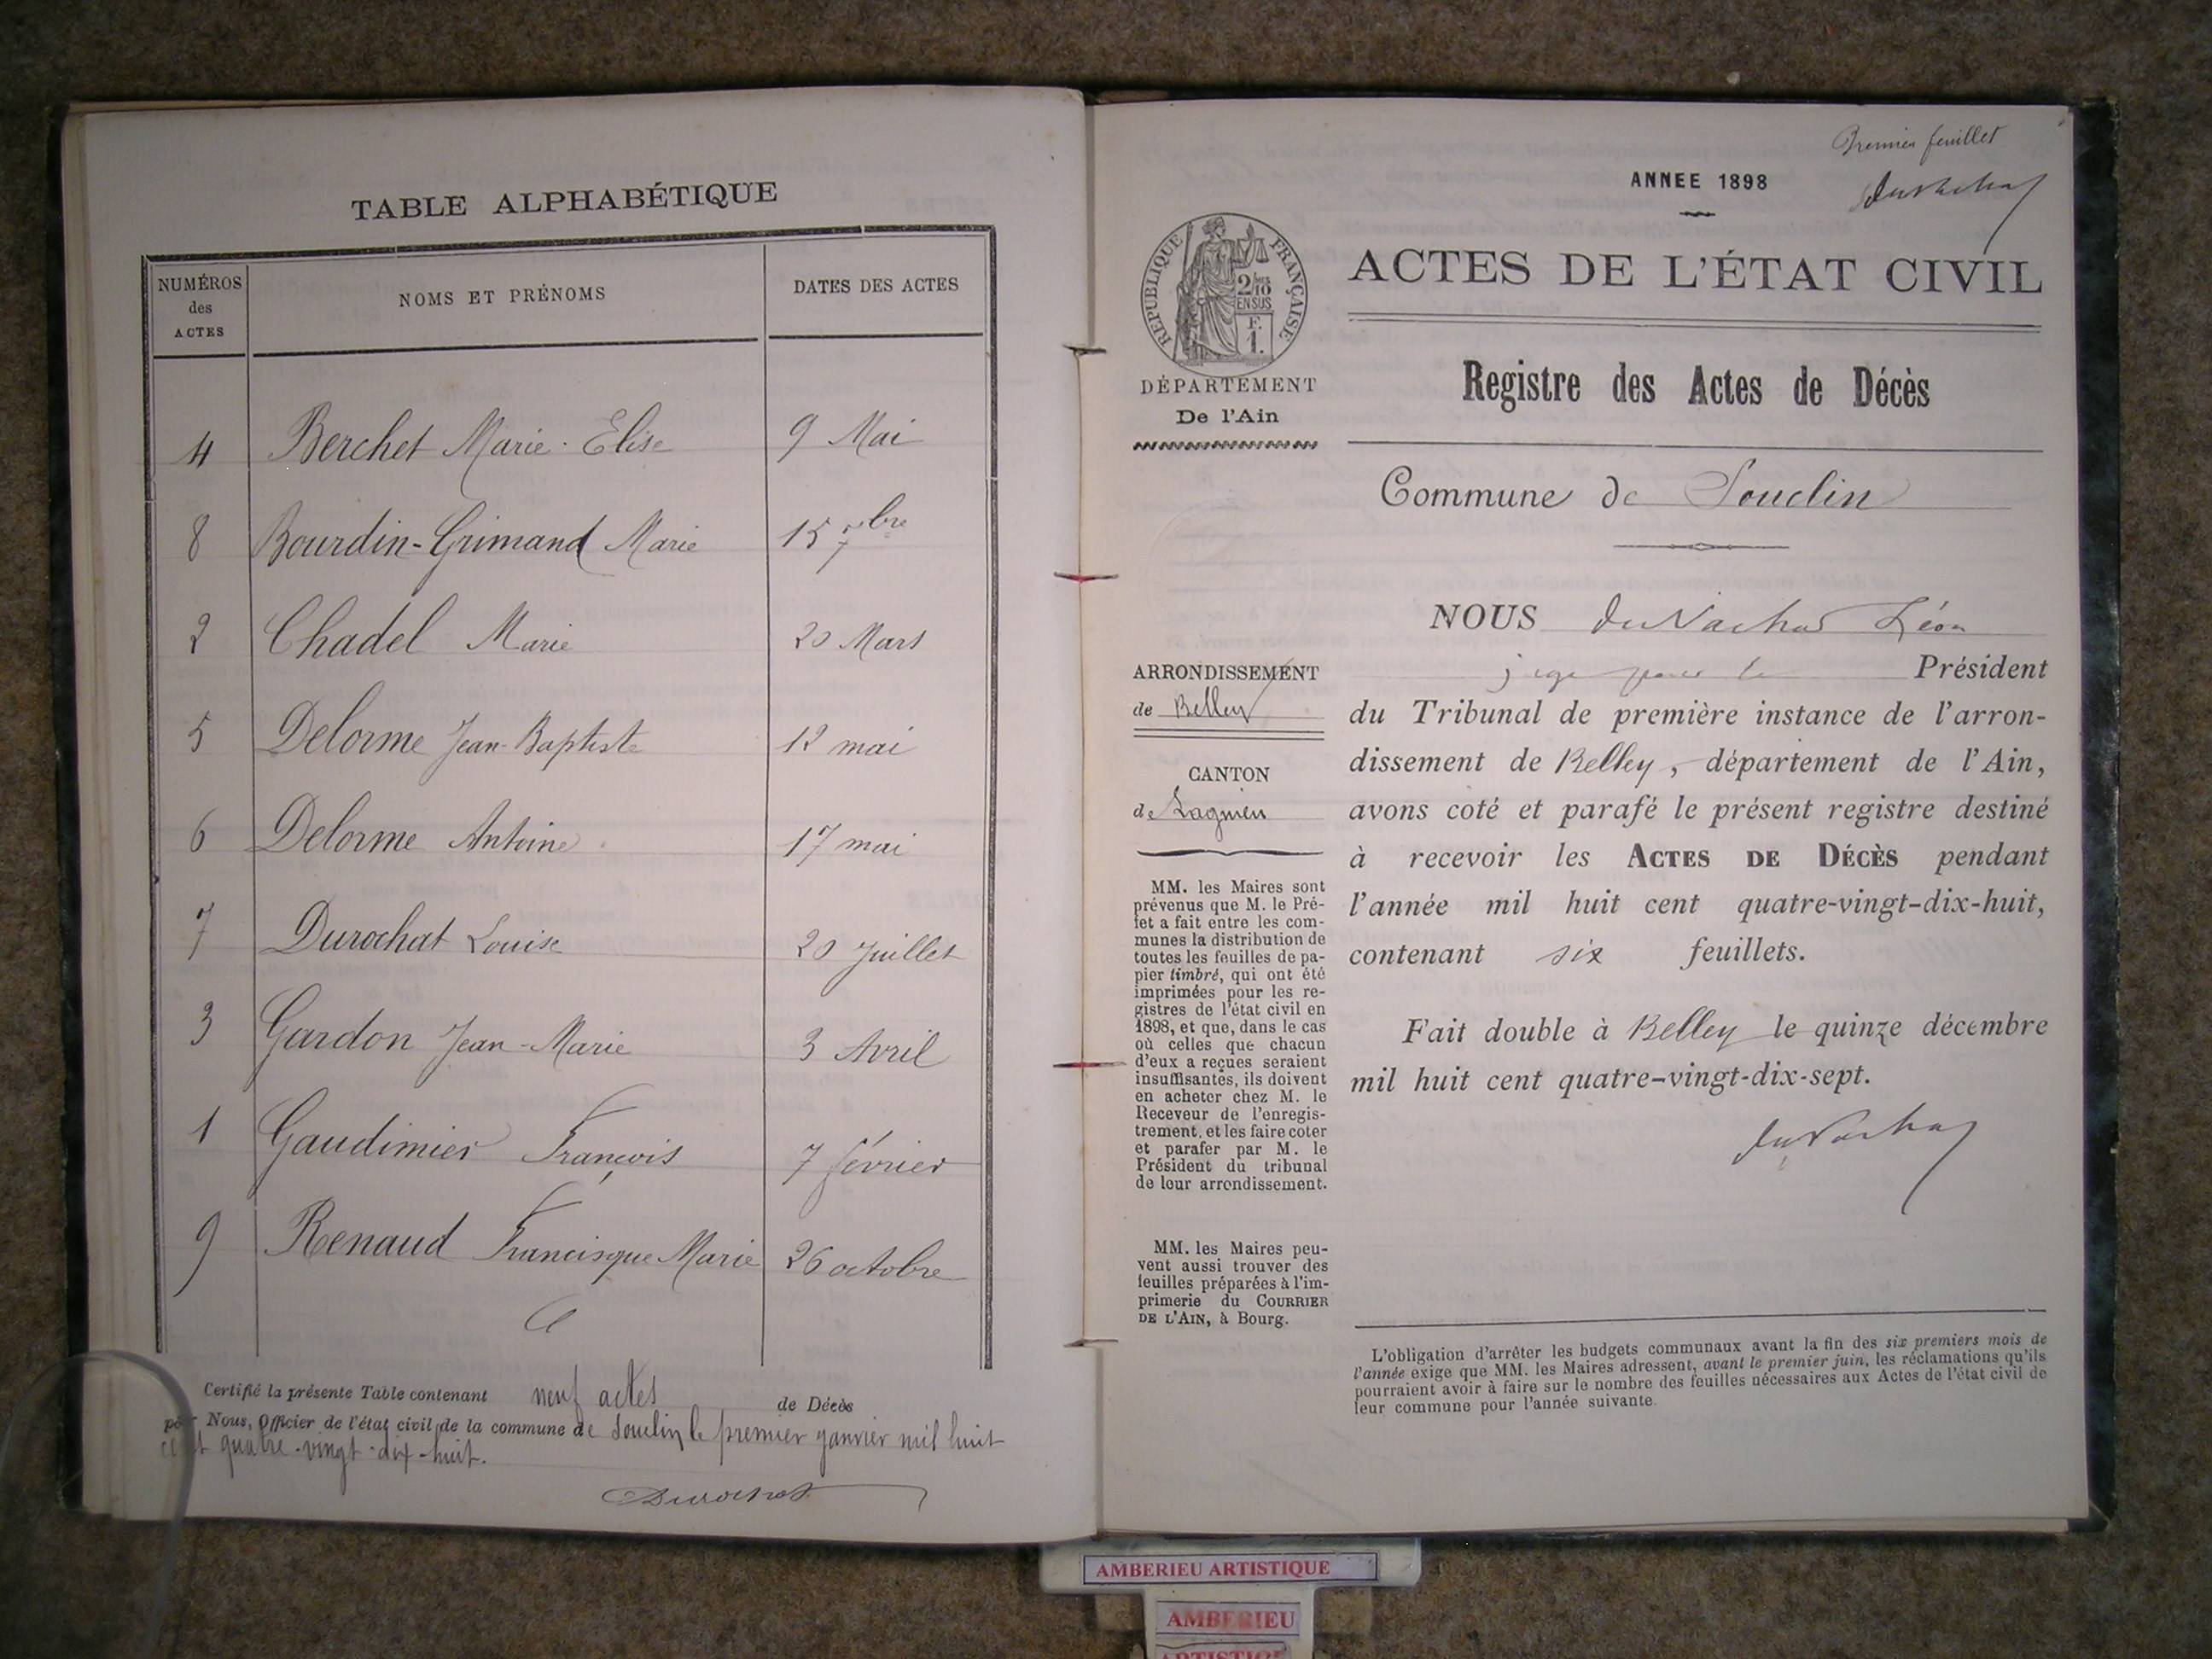 TABLE ALPHABÉTIQUE
NUMÉROS des ACTES NOMS ET PRÉNOMS DATES DES ACTES
4 Berchet Marie-Elise 9 Mai
8 Bourdin-Grimand Marie 15 7bre
2 Chadel Marie 20 Mars
5 Delorme Jean-Baptiste 12 mai
6 Delorme Antoine 17 mai
7 Durochat Louise 20 Juillet
3 Gardon Jean-Marie 3 Avril
1 Gaudimier François 7 février
9 Renaud Francisque Marie 26 octobre
Certifié la présente Table contenant neuf actes de Décès
par Nous, Officier de l'état civil de la commune de Souclin le premier janvier mil huit
cent quatre-vingt-dix-huit.
Durochat
Premier feuillet
ANNEE 1898
RÉPUBLIQUE FRANÇAISE
2/10
EN SUS
F.
1.
ACTES DE L'ÉTAT CIVIL
DÉPARTEMENT
De l'Ain
Registre des Actes de Décès
Commune de Souclin
ARRONDISSEMENT
de Belley
CANTON
de Lagnieu
MM. les Maires sont
prévenus que M. le Pré-
fet a fait entre les com-
munes la distribution de
toutes les feuilles de pa-
pier timbré, qui ont été
imprimées pour les re-
gistres de l'état civil en
1898, et que, dans le cas
où celles que chacun
d'eux a reçues seraient
insuffisantes, ils doivent
en acheter chez M. le
Receveur de l'enregis-
trement, et les faire coter
et parafer par M. le
Président du tribunal
de leur arrondissement.
MM. les Maires peu-
vent aussi trouver des
feuilles préparées à l'im-
primerie du COURRIER
DE L'AIN, à Bourg.
NOUS Léon
juge pour le Président
du Tribunal de première instance de l'arron-
dissement de Belley, département de l'Ain,
avons coté et parafé le présent registre destiné
à recevoir les ACTES DE DÉCÈS pendant
l'année mil huit cent quatre-vingt-dix-huit,
contenant six feuillets.
Fait double à Belley le quinze décembre
mil huit cent quatre-vingt-dix-sept.
L'obligation d'arrêter les budgets communaux avant la fin des six premiers mois de
l'année exige que MM. les Maires adressent, avant le premier juin, les réclamations qu'ils
pourraient avoir à faire sur le nombre des feuilles nécessaires aux Actes de l'état civil de
leur commune pour l'année suivante.
AMBERIEU ARTISTIQUE
AMBERIEU
ARTISTIQUE